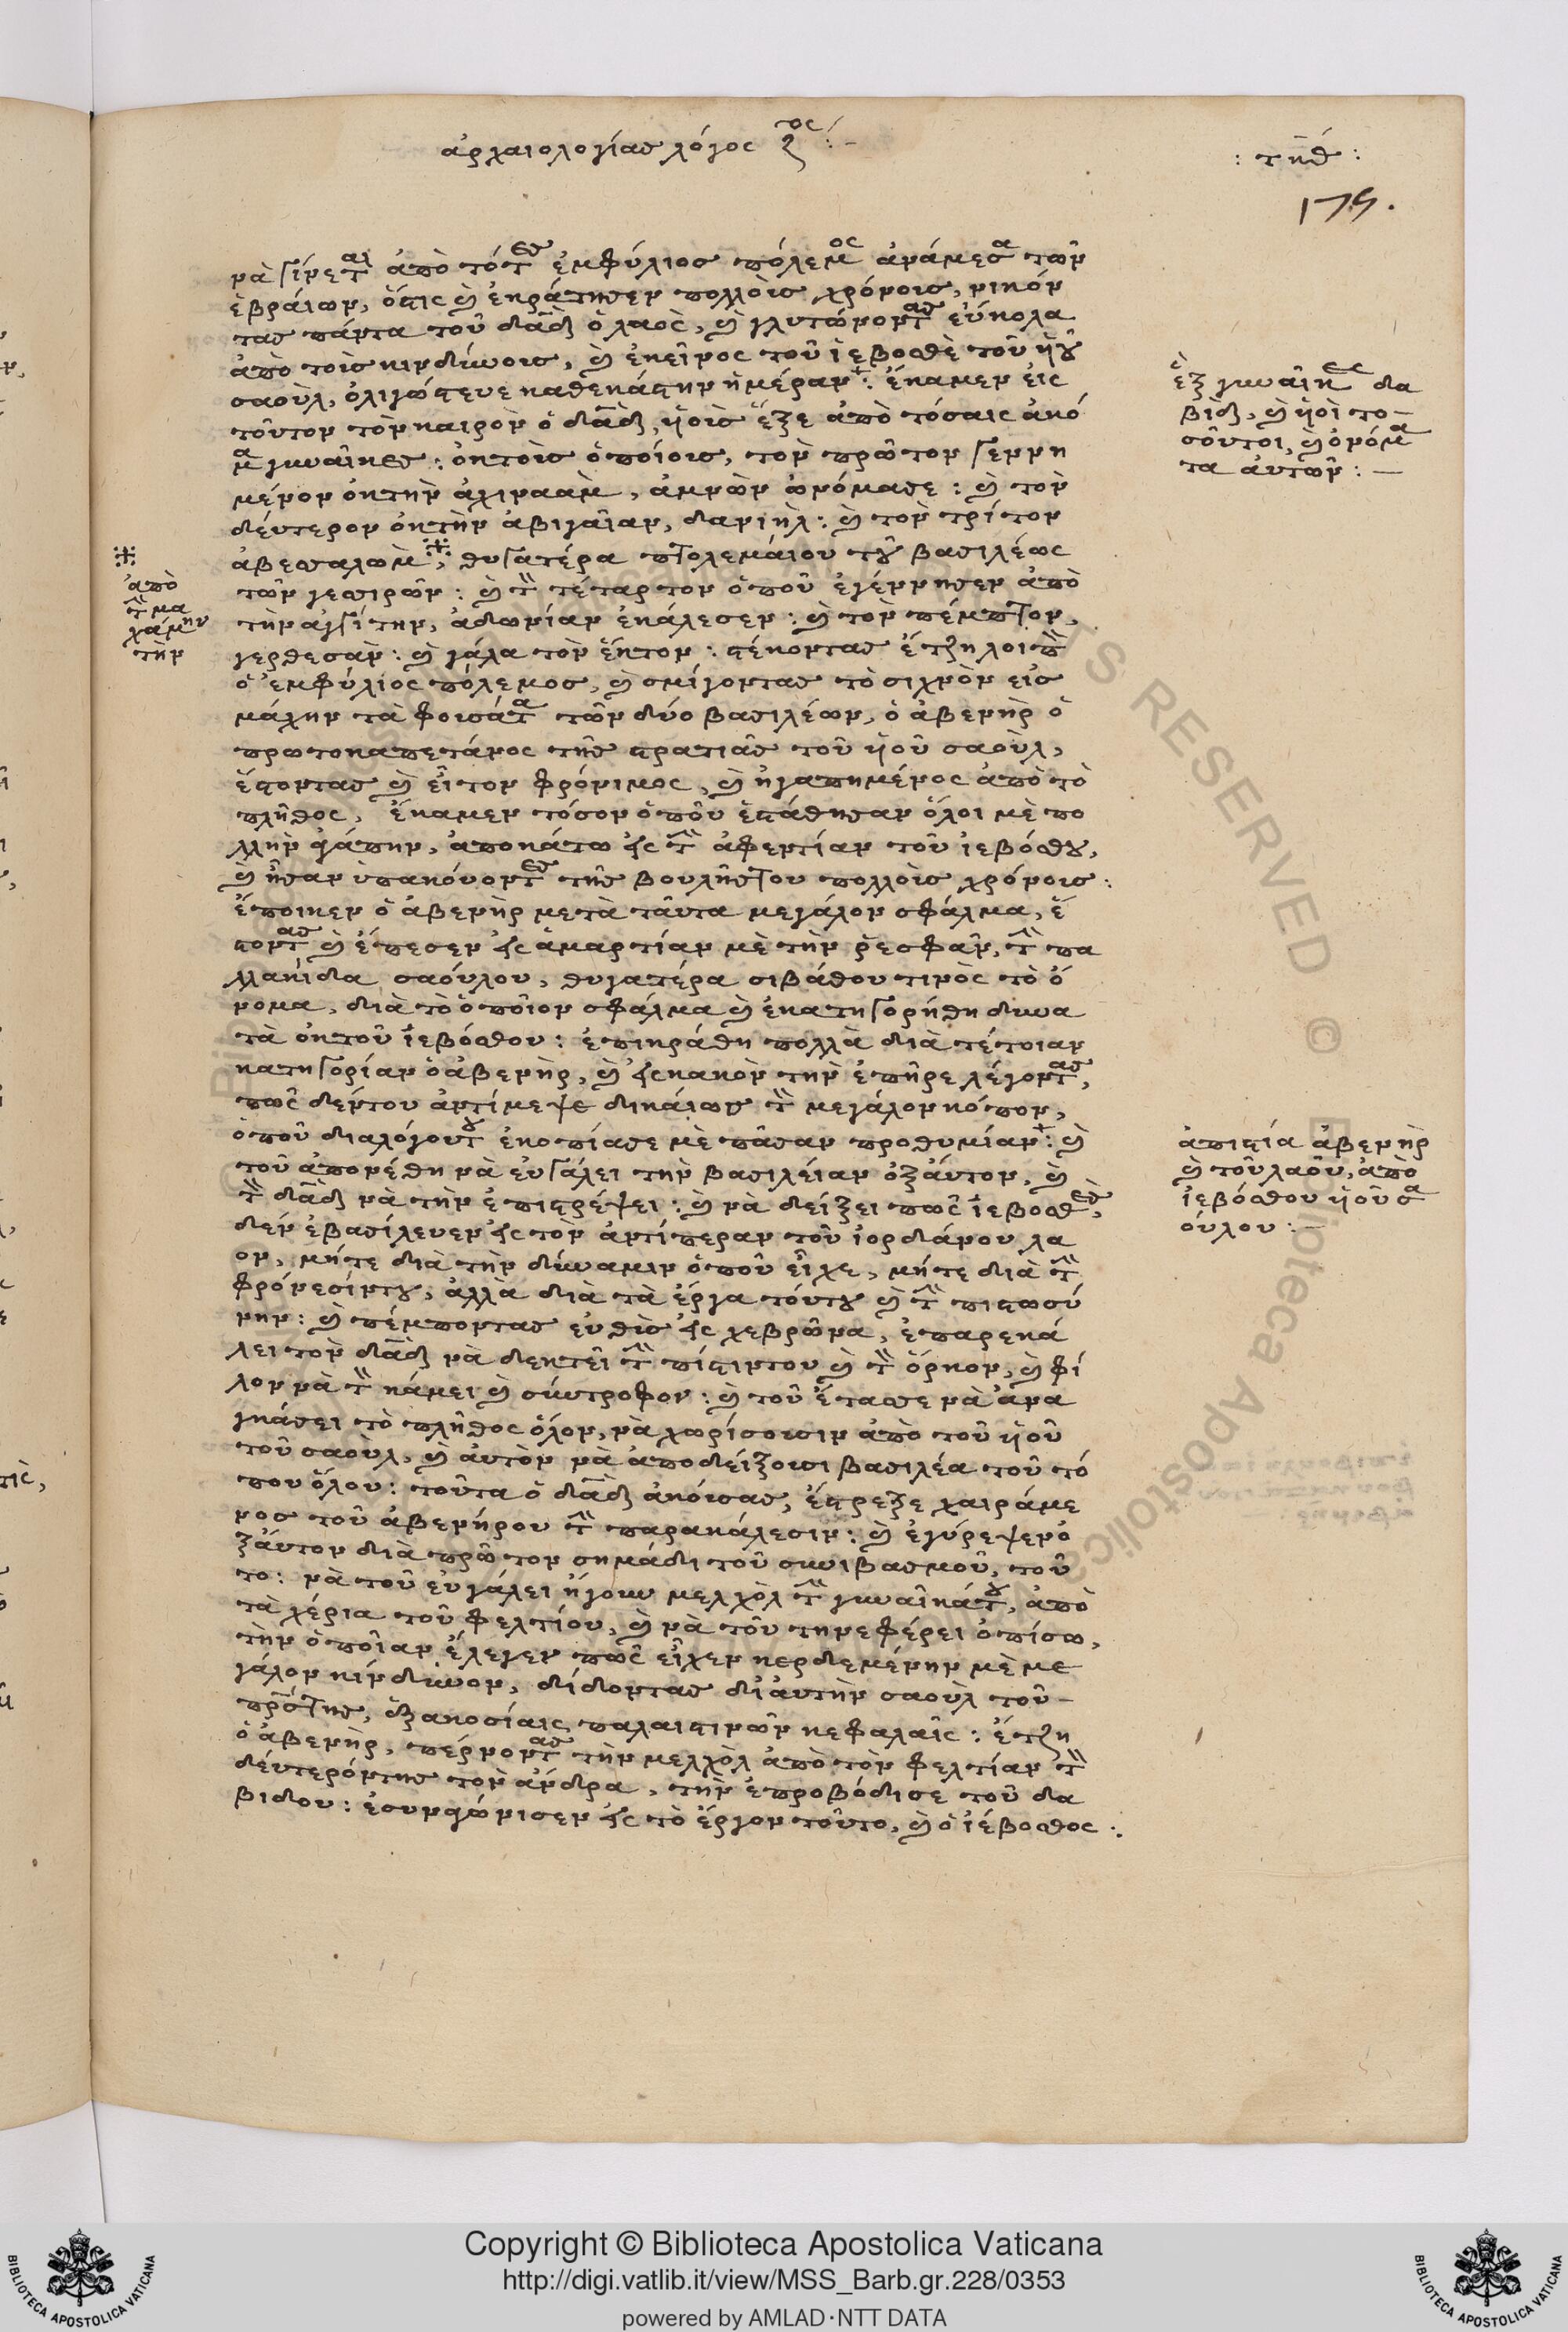 ἀρχαιολογίας λόγος ζος :-
: τηθ :
179.
νὰ γίνεται ἀπὸ τότες ἐμφύλιος πόλεμος ἀνάμεσα τῶν
ἑβραίων, ὅστις καὶ ἐκράτησεν πολλοῖς χρόνοις, νικόν
τας πάντα τοῦ δᾱδ ὁ λαὸς, καὶ γλυτώνοντας εὔκολα
ἀπὸ τοὶς κινδύνοις, καὶ ἐκεῖνος τοῦ ἰεβοσθὲ τοῦ ὑιοῦ
σαοὺλ, ὀλιγώστευε καθεκάστην ἡμέραν : ἔκαμεν εἰς
τοῦτον τὸν καιρὸν ὁ δᾱδ, ὑιοὶς ἕξε ἀπὸ τόσαις ἀκό
μα γυναῖκες : ὀκτοὶς ὁποίοις, τὸν πρῶτον γεννη
μένον ὀκτὴν ἀχιναὰμ, ἀμνὼν ὠνόμασε : καὶ τὸν
δεύτερον ὀκτὴν ἀβιγαῖαν, δανιὴλ : καὶ τὸν τρίτον
ἀβεσσαλὼμ, θυγατέρα πτολεμαίου τοῦ βασιλέως
τῶν γεσιρῶν : καὶ τὸν τέταρτον ὁποῦ ἐγέννησεν ἀπὸ
τὴν αἰγίτην, ἀδωνίαν ἐκάλεσεν : καὶ τὸν πέμπτον,
γερθεσὰν : καὶ γάλα τὸν ἕκτον : στέκοντας ἔτζη λοιπὸν
ὁ ἐμφύλιος πόλεμος, καὶ σμίγοντας τὸ σιχνὸν εἰς
μάχην τὰ φουσάτα τῶν δύο βασιλέων, ὁ ἀβενὴρ ὁ
πρωτοκαπετάνος τῆς στρατιᾶς τοῦ ὑιοῦ σαοὺλ,
ἔστοντας καὶ εἶτον φρόνιμος, καὶ ἠγαπημένος ἀπὸ τὸ
πλῆθος, ἔκαμεν τόσον ὁποῦ ἐστάθησαν ὅλοι μὲ πο
λλὴν ἀγάπην, ἀποκάτω εἰς τὴν ἀφεντίαν τοῦ ἰεβόσθου,
καὶ ἦσαν ὑπακούοντες τῆς βουλῆς του πολλοῖς χρόνοις :
ἔποικεν ὁ ἀβενὴρ μετὰ ταῦτα μεγάλον σφάλμα, ἔ
στοντας καὶ ἔπεσεν εἰς ἁμαρτίαν μὲ τὴν ῥεσφὰν, τὴν πα
λλακίδα σαούλου, θυγατέρα σιβάθου τινὸς τὸ ὄ
νομα, διὰ τὸ ὁποῖον σφάλμα καὶ ἐκατηγορήθη δυνα
τὰ ὀκτοῦ ἰεβόσθου : ἐπικράθη πολλὰ διὰ τέτοιαν
κατηγορίαν ὁ ἀβενὴρ, καὶ εἰς κακὸν τὴν ἐπῆρε λέγοντας,
πῶς δέντου ἀντίμεψε δικαίως τὸν μεγάλον κόπον,
ὁποῦ διαλόγουτου ἐκοπίασε μὲ πᾶσαν προθυμίαν : καὶ
τοῦ ἀπονέθη νὰ εὐγάλει τὴν βασιλείαν ὀξαύτον, καὶ
τὸν δᾱδ νὰ τὴν ἐπιστρέψει : καὶ νὰ δείξει πῶς ἰεβοσθὲς,
δὲν ἐβασίλευεν εἰς τὸν ἀντίπεραν τοῦ ἰορδάνου λα
ον, μήτε διὰ τὴν δύναμιν ὁποῦ εἶχε, μήτε διὰ τὴν
φρόνεσίντου, ἀλλὰ διὰ τὰ ἔργα τούτου καὶ τὴν πιστωσύ
νην : καὶ πέμποντας εὐθὶς εἰς χεβρῶνα, ἐπαρεκά
λει τὸν δᾱδ νὰ δεκτεῖ τὴν πίστιντου καὶ τὸν ὅρκον, καὶ φί
λον νὰ τὸν κάμει καὶ σύντροφον : καὶ τοῦ ἔτασσε νὰ ἀνα
γκάσει τὸ πλῆθος ὅλον, νὰ χωρίσουσιν ἀπὸ τοῦ ὑιοῦ
τοῦ σαοὺλ, καὶ αὐτὸν νὰ ἀποδείξουσι βασιλέα τοῦ τό
που ὅλου : τοῦτα ὁ δᾱδ ἀκούσας, ἔστρεξε χαιράμε
νος τοῦ ἀβενήρου τὴν παρακάλεσιν : καὶ ἐγύρεψεν ὀ
ξαύτον διὰ πρῶτον σημάδι τοῦ συνιβασμοῦ, τοῦ
το : νὰ τοῦ εὐγάλει ἤγουν μελχὸλ τὴν γυναῖκάτου, ἀπὸ
τὰ χέρια τοῦ φελτίου, καὶ νὰ τοῦ τηνεφέρει ὀπίσω,
τὴν ὁποῖαν ἔλεγεν πῶς εἶχεν κερδεμένην μὲ με
γάλον κίνδυνον, δίδοντας δι' αὐτὴν σαοὺλ τοῦ-
πρς της, ἑξακοσίαις παλαιστινῶν κεφαλαῖς : ἔτζη
ὁ ἀβενὴρ, πέρνοντας τὴν μελχὸλ ἀπὸ τὸν φελτίαν τὸν
δεύτερόντης τὸν ἄνδρα, τὴν ἐπροβόδισε τοῦ δα
βιδου : ἐσυνφώνισεν εἰς τὸ ἔργον τοῦτο, καὶ ὁ ἰέβοσθος :.
ἓξ γυναῖκες δα
βὶδ, καὶ ὑιοὶ το-
σοῦτοι, καὶ ὀνόμα
τα αὐτῶν : —
ἀπὸ
τὴν μα
χάμην
τὴν
ἀπιστία ἀβενὴρ
καὶ τοῦ λαοῦ, ἀπὸ
ἰεβόσθου ὑιοῦ σα
ούλου : —
Copyright © Biblioteca Apostolica Vaticana
http://digi.vatlib.it/view/MSS_Barb.gr.228/0353
powered by AMLAD·NTT DATA
BIBLIOTECA APOSTOLICA VATICANA
BIBLIOTECA APOSTOLICA VATICANA